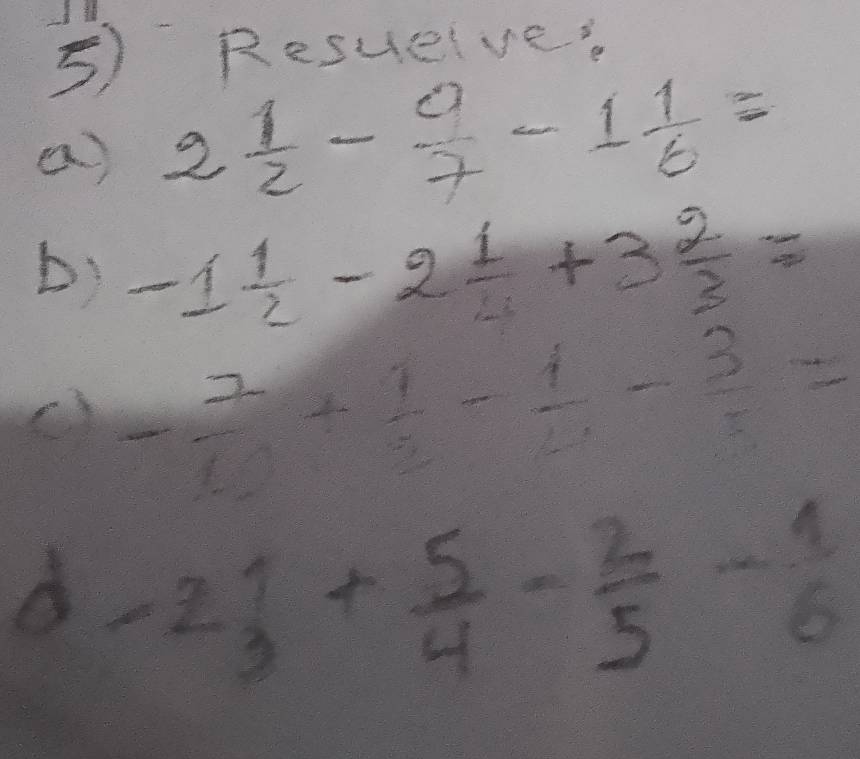 5) Resuelve:
a) 2 1/2 - 9/7 - 1 1/6 =
b) -1 1/2 - 2 1/4 + 3 2/3 =
c) - 7/10 + 1/2 - 1/4 - 3/5 =
d -2 1/3 + 5/4 - 2/5 - 1/6